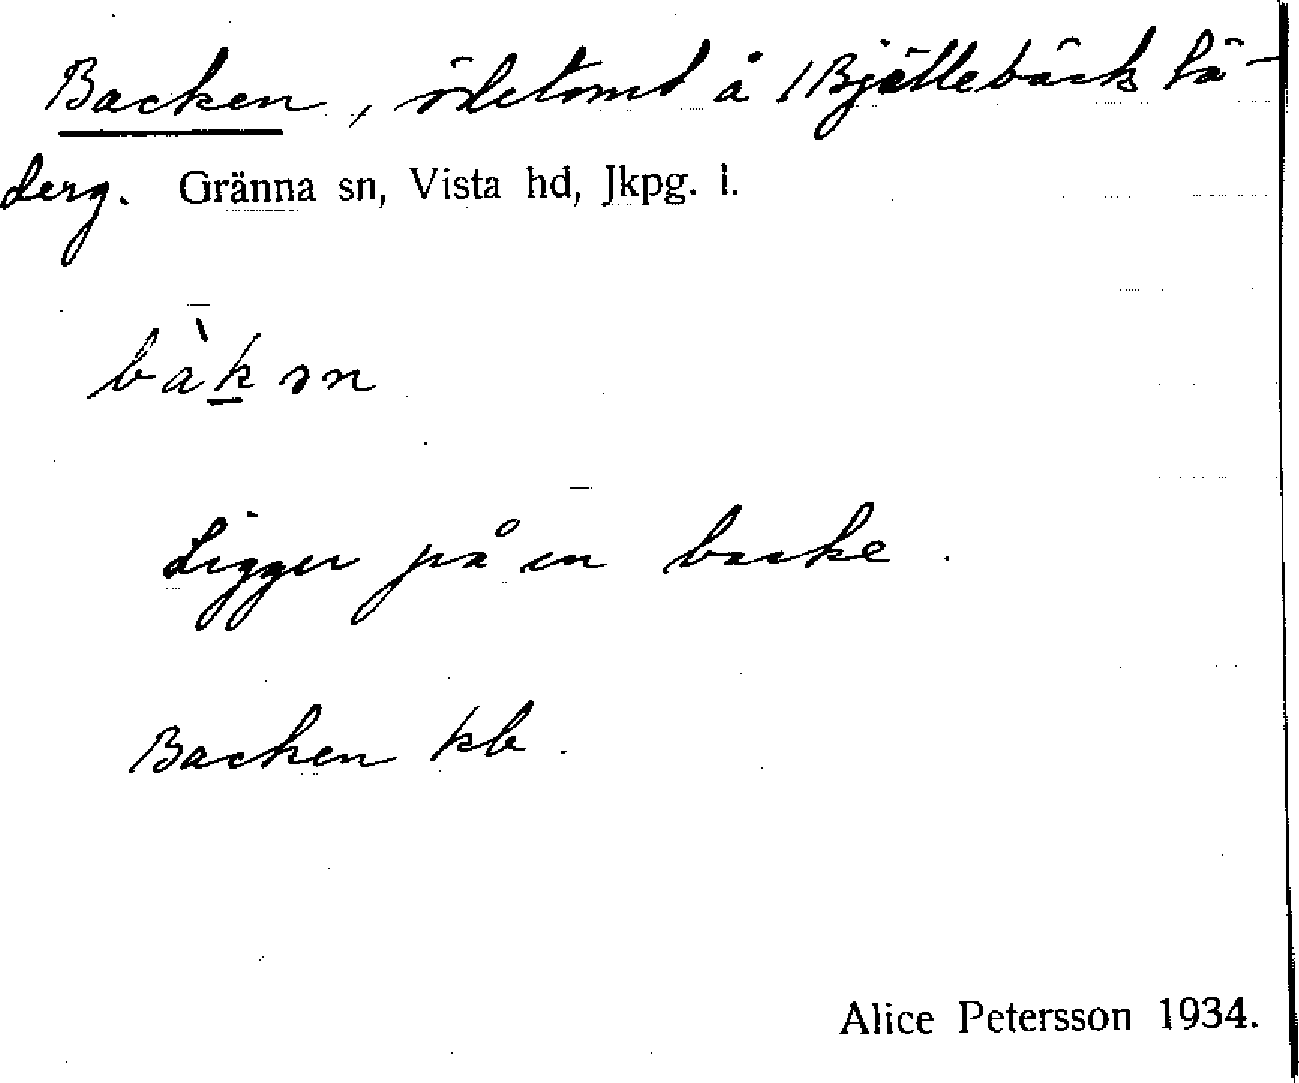 Backen, ödetomt å Bjällebäck lä-
derg. Gränna sn, Vista hd, Jkpg. l.
bàk̲ən
Ligger på en backe.
Backen kb.
Alice Petersson 1934.